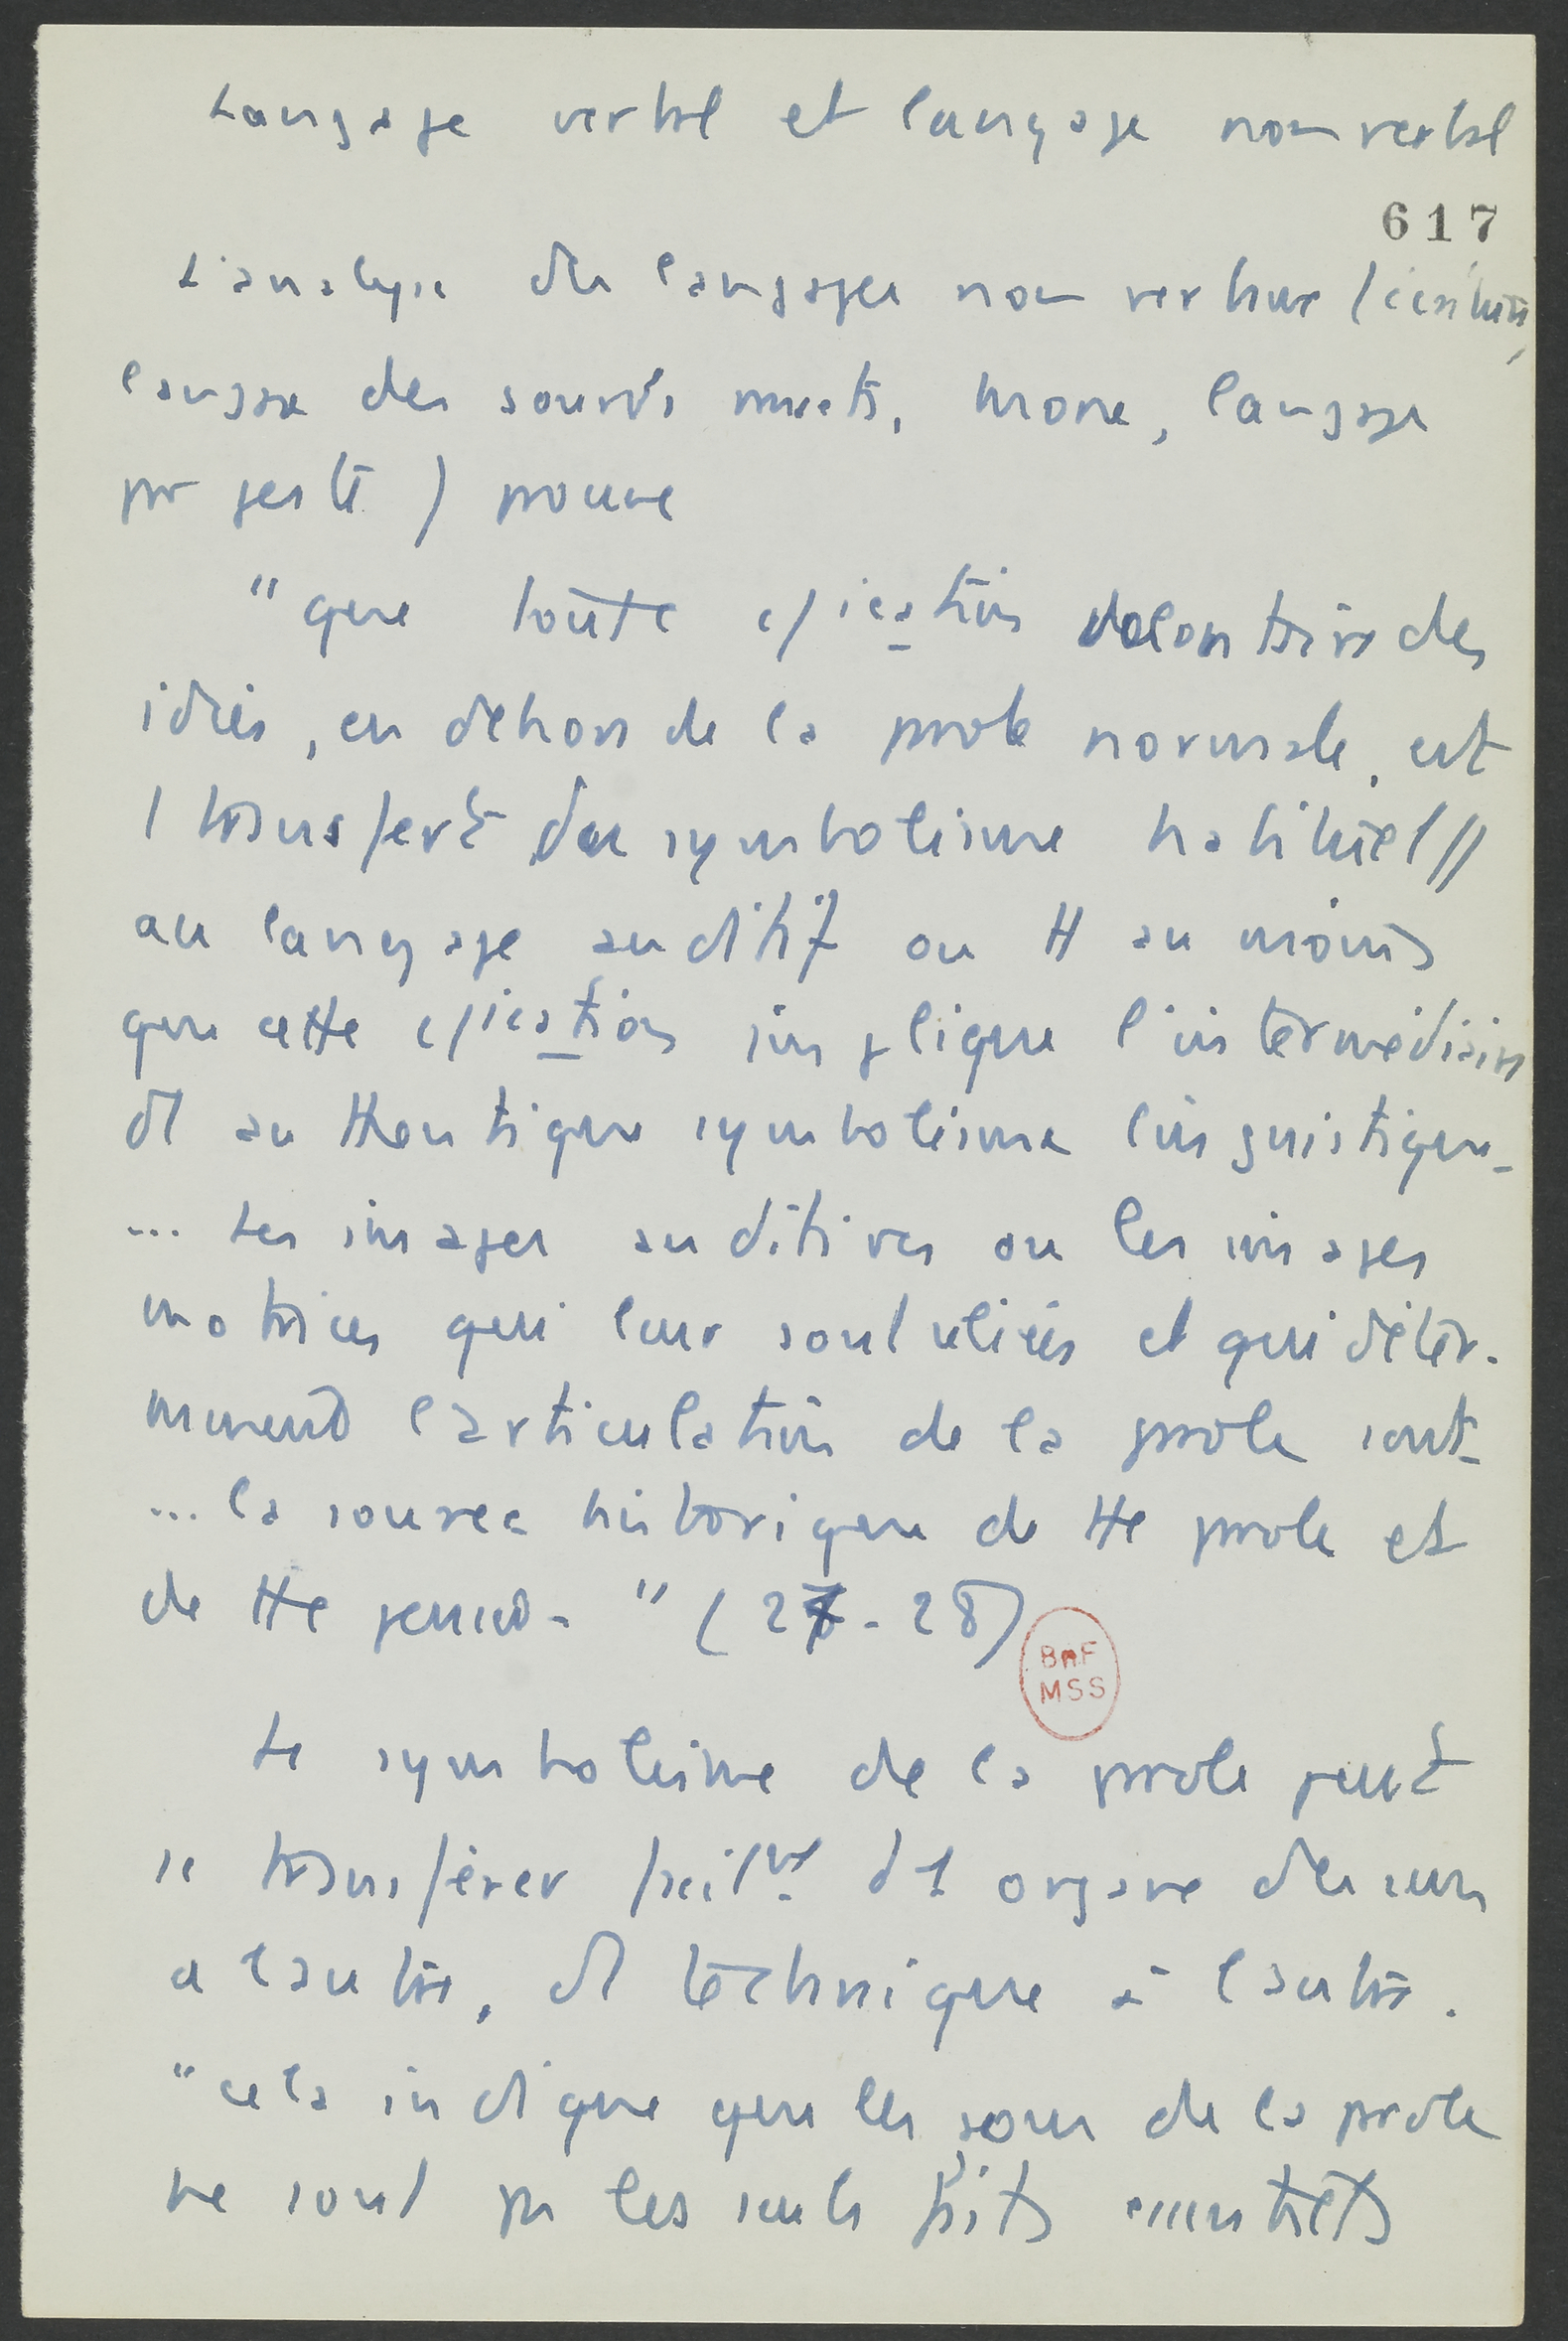 Langage verbal et langage non verbal
617
L'analyse des langages non verbaux (écriture,
langage des sourds muets, morse, langage
par geste) prouve
"que toute c/ication volontaire des
idées, en dehors de la parole normale, est
1 transfert du symbolisme habituel //
au langage auditif ou tt au moins
que cette c/ication implique l'intermédiaire
d'1 authentique symbolisme linguistique_
... Les images auditives ou les images
motrices qui leur sont reliées et qui déter-
minent l'articulation de la parole sont_
... la source historique de tte parole et
de tte pensée_" (27-28)
BnF
MSS
Le symbolisme de la parole peut
se transférer facilmt d'1 organe des sens
à l'autre, d'1 technique à l'autre.
"cela indique que les sons de la parole
ne sont pas les seuls faits essentiels